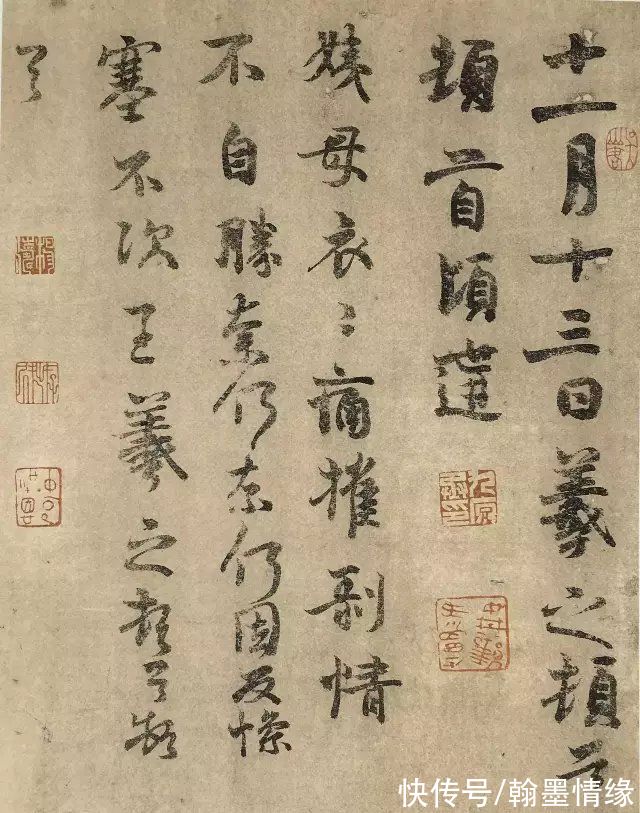 十一月十三日羲之頓首
頓首頃遘
姨母哀〻痛摧剥情
不自勝奈何奈何因反慘
塞不次王羲之頓首頓
首
快传号/翰墨情缘